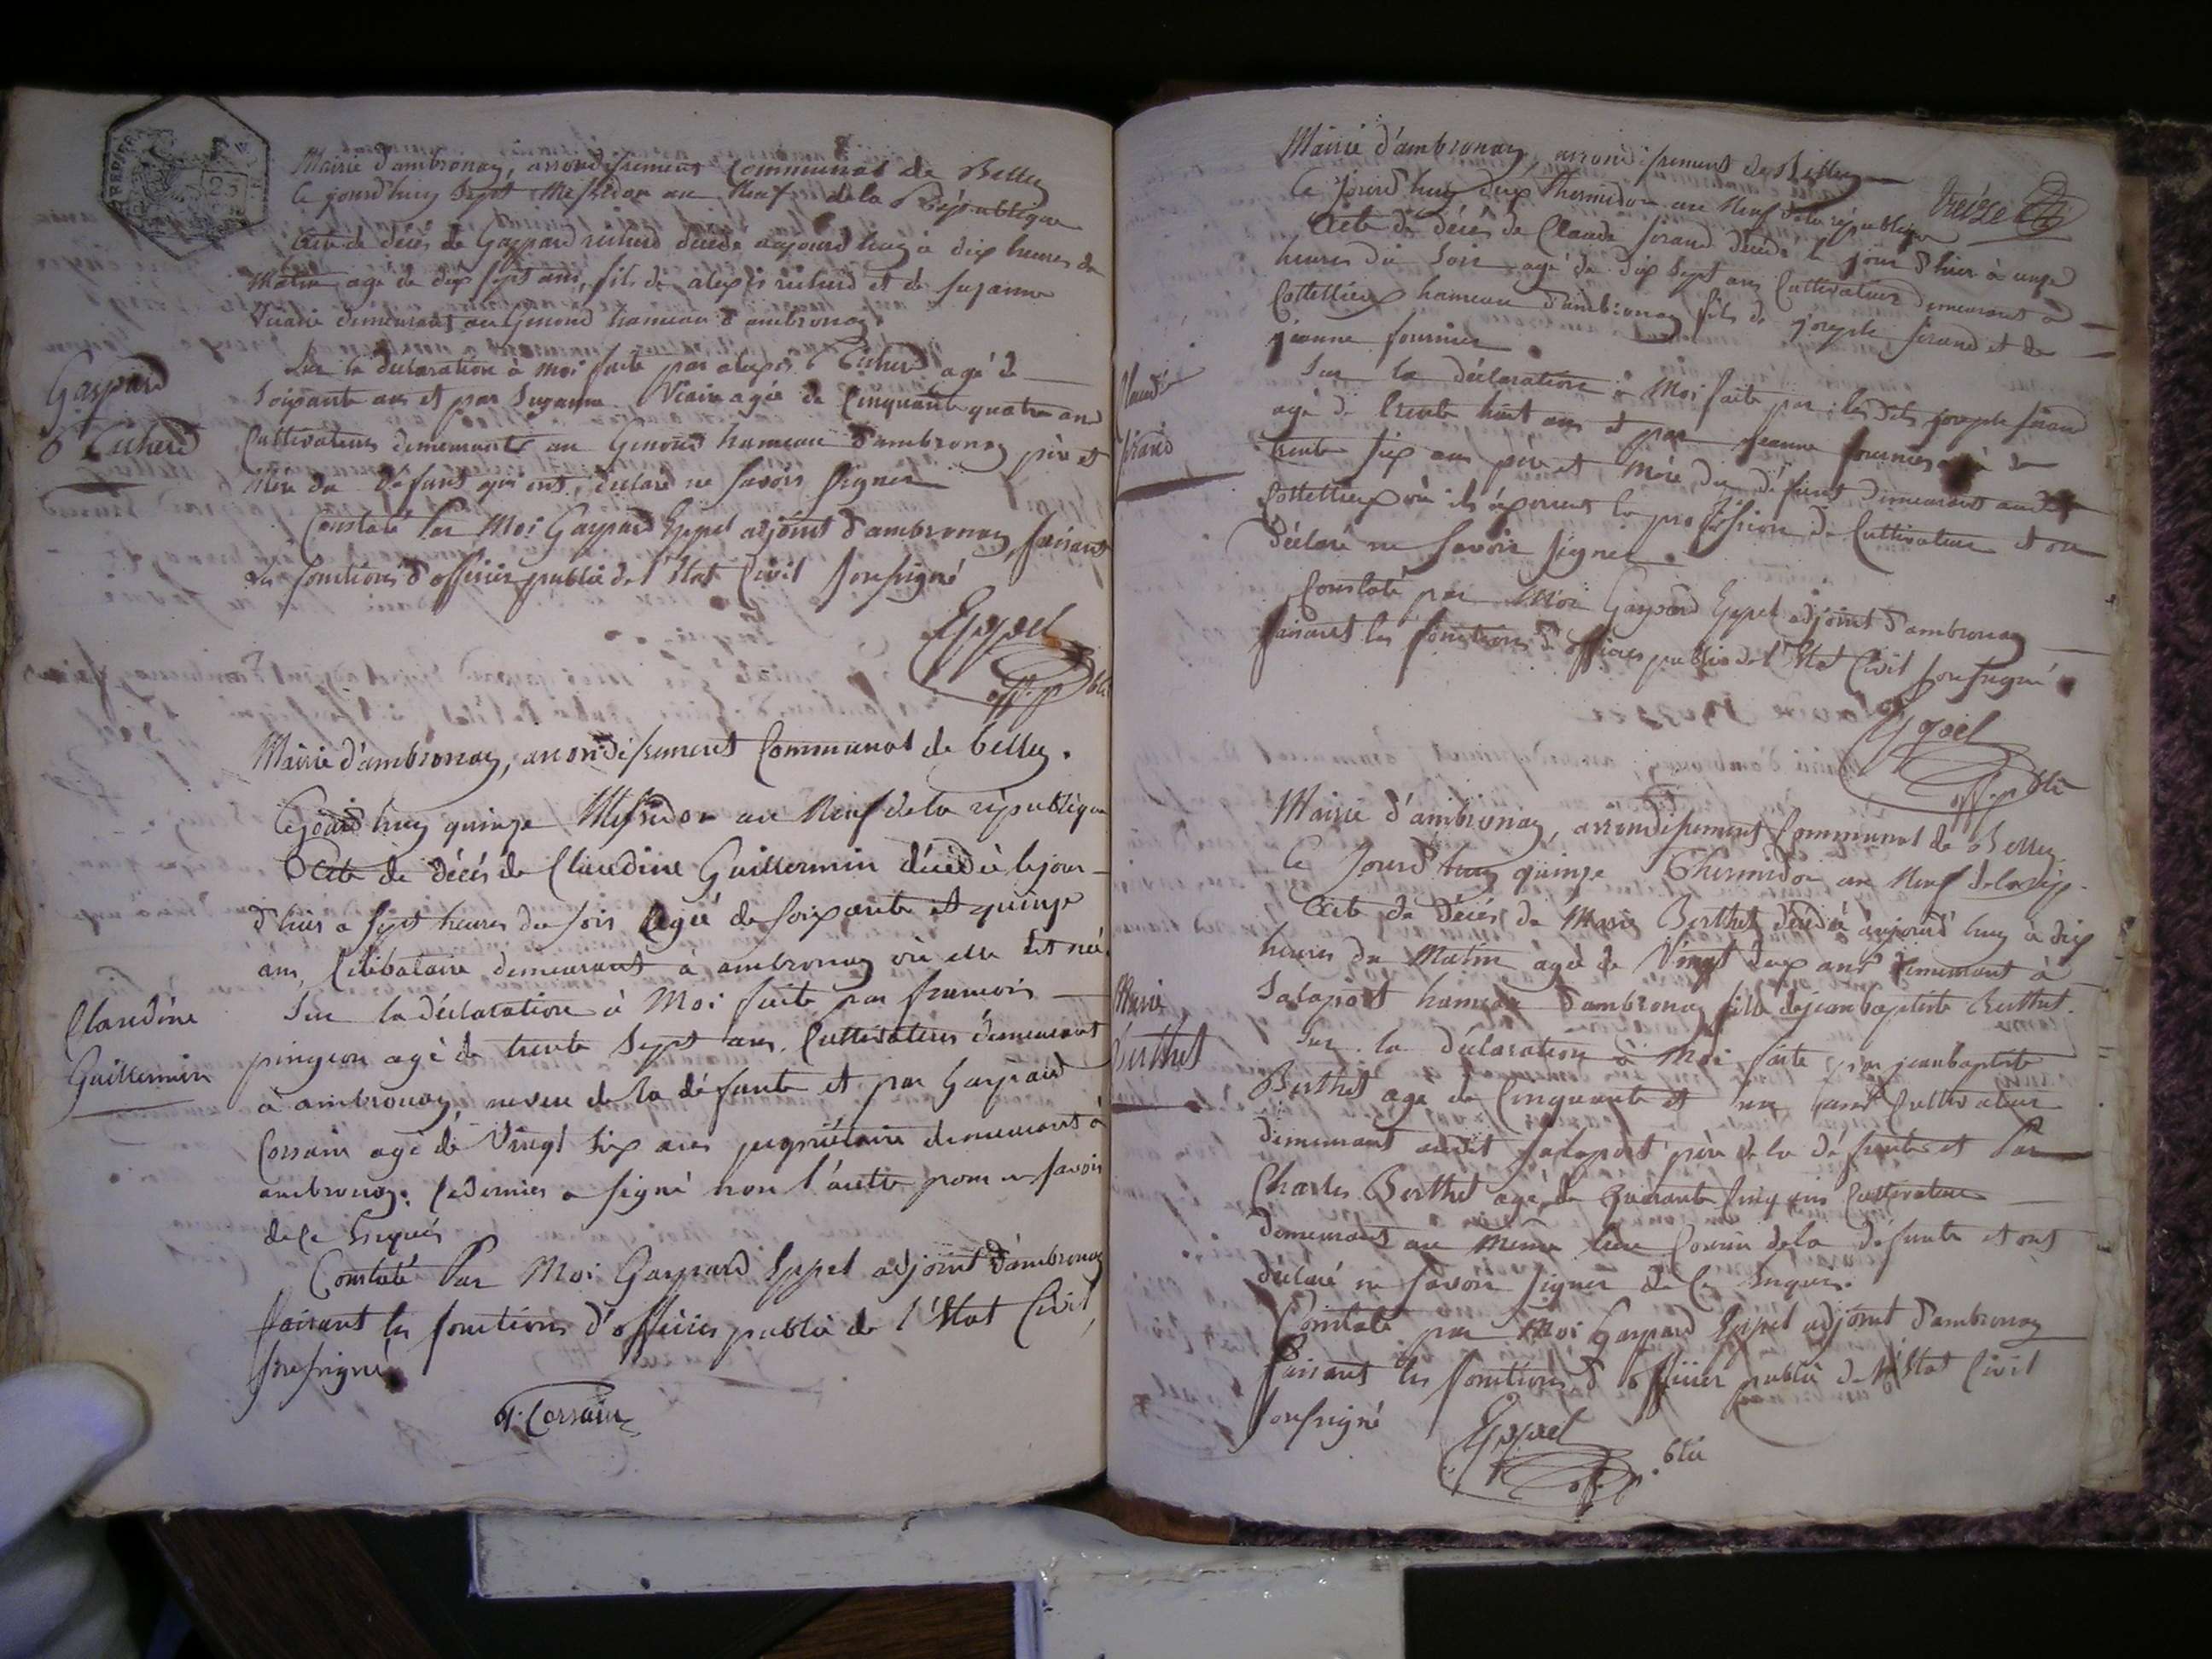 Mairie d'ambronay, arrondissement Communal de Belley
Ce jourd'huy Sept Messidor an Neuf de la République
Acte de décès de Gaspard richerd décédé aujourd'huy à dix heures du
Matin agé de dix sept ans, fils de alexis richerd et de suzanne
demeurant au Genoud hameau d'ambronay.
Sur la déclaration à moi faite par alexis Richerd agé de
Soixante ans et par Suzanne agée de Cinquante quatre ans
Cultivateurs demeurants au Genoud hameau d'ambronay père et
Mère du défunt qui ont déclaré ne savoir signer
Constaté Par Moi Gaspard Eppel adjoint d'ambronay, faisant
les fonctions d'officier public de l'Etat Civil soussigné
Gaspard
Richerd
Eppel
off. p blic
Mairie d'ambronay, arrondissement Communal de belley.
Cejourd'huy quinze Messidor an Neuf de la république
Acte de décès de Claudine Guillermin décédée le jour
d'hier a sept heures du soir agée de soixante et quinze
ans, Célibataire demeurant à ambronay où elle est née.
Sur la déclaration à Moi faite par francois
pingeon agé de trente sept ans. Cultivateur demeurant
à ambronay, neveu de la défunte et par Gaspard
Corrain agé de Vingt six ans propriétaire demeurant à
ambronay. Ce dernier a signé non l'autre pour ne savoir
de ce Enquis
Constaté Par Moi Gaspard Eppel adjoint d'ambronay
faisant les fonctions d'officier public de l'Etat Civil,
soussigné
Claudine
Guillermin
G. Corrain
Mairie d'ambronay, arrondissement de Belley
treize
Ce jourd'huy deux thermidor an Neuf de la république
Acte de décès de Claude sirand décédé le jour d'hier à onze
heures du soir agé de dix sept ans Cultivateur demeurant à
Cottellieux hameau d'ambronay fils de joseph sirand et de
jeanne fournier
Sur la déclaration à Moi faite par les dits joseph sirand
agé de trente huit ans et par jeanne fournier agée de
trente six ans père et Mère du défunt demeurant audit
Cottellieux où ils éxercent la profession de Cultivateur et on
déclaré ne savoir signer.
Constaté par Moi Gaspard Eppel adjoint d'ambronay
faisant les fonctions d'officier public de l'Etat Civil soussigné
Claude
sirand
Eppel
off. p blic
Mairie d'ambronay, arrondissement Communal de Belley
Ce Jourd'huy quinze Thermidor an Neuf de la rép.
Acte de décès de Marie Berthet décédée aujourd'huy à dix
heures du Matin agée de Vingt deux ans demeurant à
Salaport hameau d'ambronay fille de jeanbaptiste Berthet.
Sur la déclaration à Moi faite par jeanbaptiste
Berthet agé de Cinquante et un ans Cultivateur
demeurant audit Salaport père de la défunte et Par
Charles Berthet agé de quarante Cinq ans Cultivateur
demeurant au même lieu Cousin de la défunte et ont
déclaré ne savoir signer de ce Enquis.
Constaté par Moi Gaspard Eppel adjoint d'ambronay
faisant les fonctions d'officier public de l'Etat Civil
soussigné
Marie
Berthet
Eppel
off. p. blic